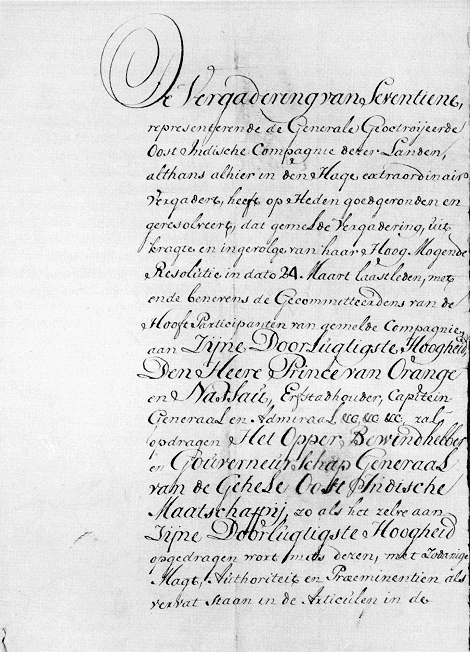 De Vergadering van Seventiene,
representerende de Generale Geoctroijeerde
Oost Indische Compagnie dezer Landen,
althans alhier in den Hage extraordinair
Vergadert, heeft op Heden goedgevonden en
geresolveert, dat gemelde Vergadering, uit
kragte en ingevolge van haar Hoog Mogende
Resolutie in dato 24. Maart laastleden, met
ende benevens de Gecommitteerdens van de
Hooft Participanten van gemelde Compagnie,
aan Zijne Doorlugtigste Hoogheid
Den Heere Prince van Orange
en Nassau, Erfstadhouder, Capitein
Generaal en Admiraal, &c, &c, &c, zal
opdragen Het Opper Bewindhebber
en Gouverneurschap Generaal
van de Gehele Oost Indische
Maatschappij, zo als het zelve aan
Zijne Doorlugtigste Hoogheid
opgedragen wort mits dezen, met Zodanige
Magt, Authoriteit en Præeminentien als
vervat staan in de Articulen in de